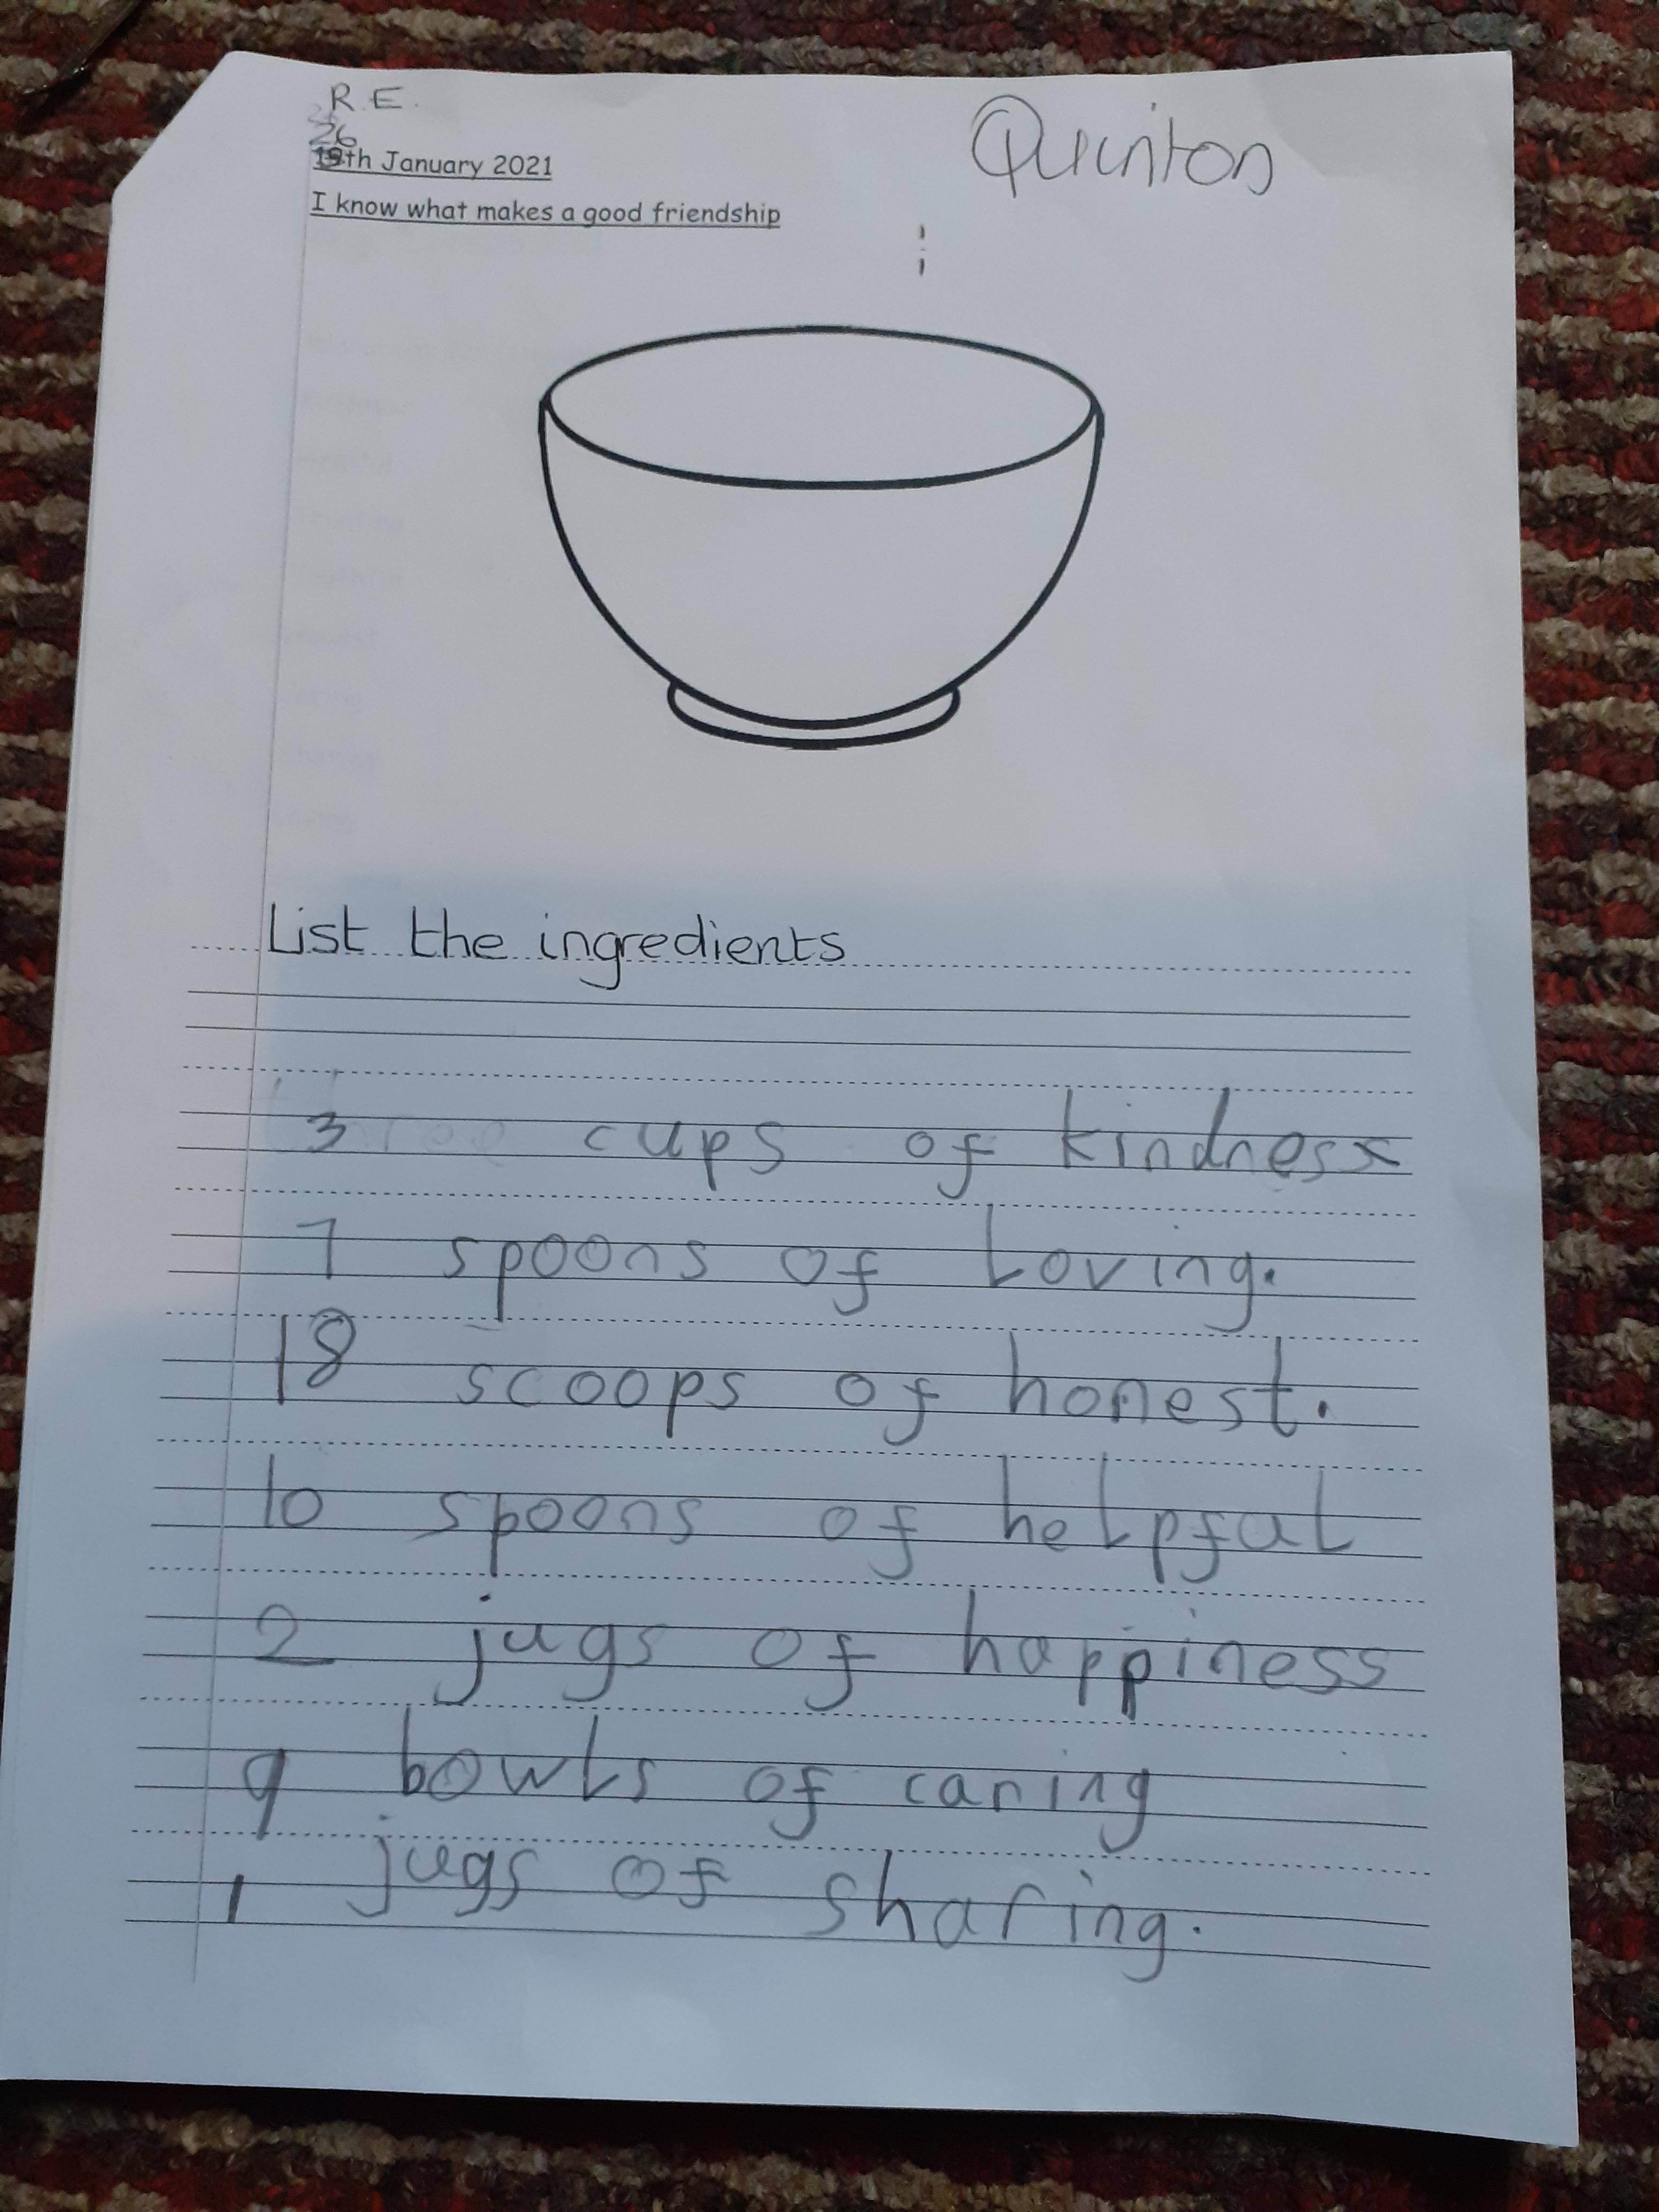 R.E.
26
19th January 2021
Quinton
I know what makes a good friendship
List the ingredients
3 cups of kindness
7 spoons of Loving.
18 scoops of honest.
10 spoons of helpful
2 jugs of happiness
9 bowls of caring
1 jugs of sharing.